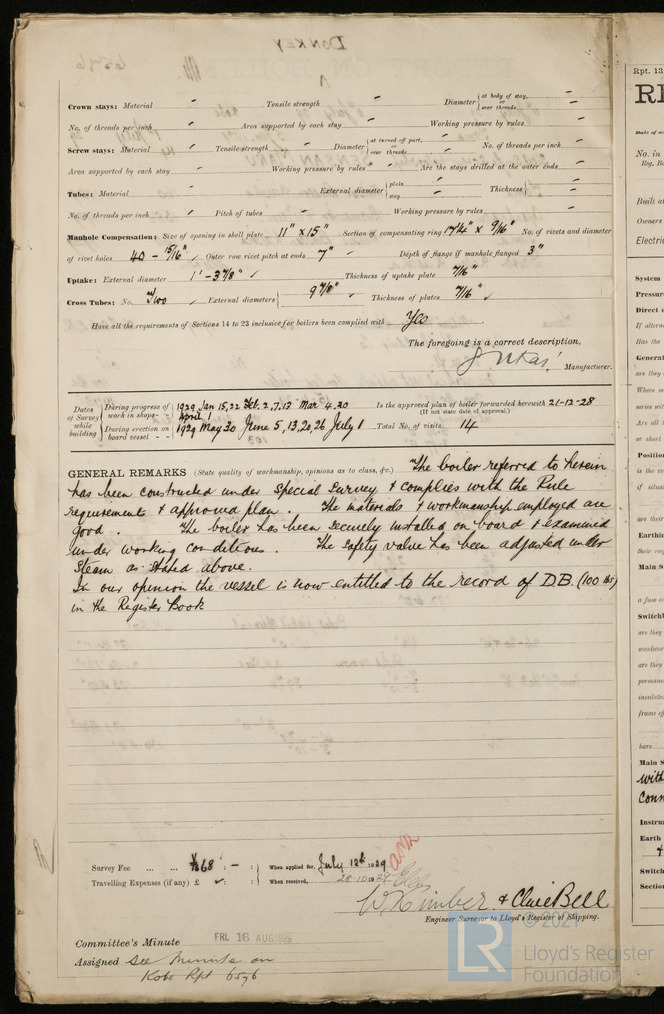 DONKEY
Crown stays: Material " Tensile strength " Diameter { at body of stay, or over threads " "
No. of threads per inch " Area supported by each stay " Working pressure by rules "
Screw stays: Material " Tensile strength " Diameter { at turned off part, or over threads " " No. of threads per inch "
Area supported by each stay " Working pressure by rules " Are the stays drilled at the outer ends "
Tubes: Material " External diameter { plain stay " " Thickness { " "
No. of threads per inch " Pitch of tubes " Working pressure by rules "
Manhole Compensation: Size of opening in shell plate 11" x 15" Section of compensating ring 17 3/4" x 9/16" No. of rivets and diameter
of rivet holes 40 - 15/16" Outer row rivet pitch at ends 7" Depth of flange if manhole flanged 3"
Uptake: External diameter 1' - 3 7/8" Thickness of uptake plate 7/16"
Cross Tubes: No. Two External diameters { 9 7/8" Thickness of plates 7/16"
Have all the requirements of Sections 14 to 23 inclusive for boilers been complied with Yes
The foregoing is a correct description,
Manufacturer.
Dates of Survey while building { During progress of work in shops - - 1929 Jan 15, 22 Feb. 2, 7, 13 Mar 4, 30 April 1 Is the approved plan of boiler forwarded herewith 21-12-28
(If not state date of approval.)
During erection on board vessel - - - 1929 May 30 June 5, 13, 20, 26 July 1 Total No. of visits 14
GENERAL REMARKS (State quality of workmanship, opinions as to class, &c.) The boiler referred to herein
has been constructed under Special Survey & complies with the Rule
requirements & approved plan. The materials & workmanship employed are
good. The boiler has been securely installed on board & examined
under working conditions. The safety valve has been adjusted under
steam as stated above.
In our opinion the vessel is now entitled to the record of D.B. (100 lbs)
in the Register Book
Survey Fee ... ... ¥68 : - : When applied for, July 12th 1929
Travelling Expenses (if any) £ : : When received, 28.10.1929
& Clive Bell
Engineer Surveyor to Lloyd's Register of Shipping.
Committee's Minute FRI. 16 AUG 1929
Assigned See minute on
Kobe Rpt 6576
LR © 2021
Lloyd's Register
Foundation
Rpt. 13
No. in
Reg. Bo
Built at
Owners
Electric
System
Pressure
Direct